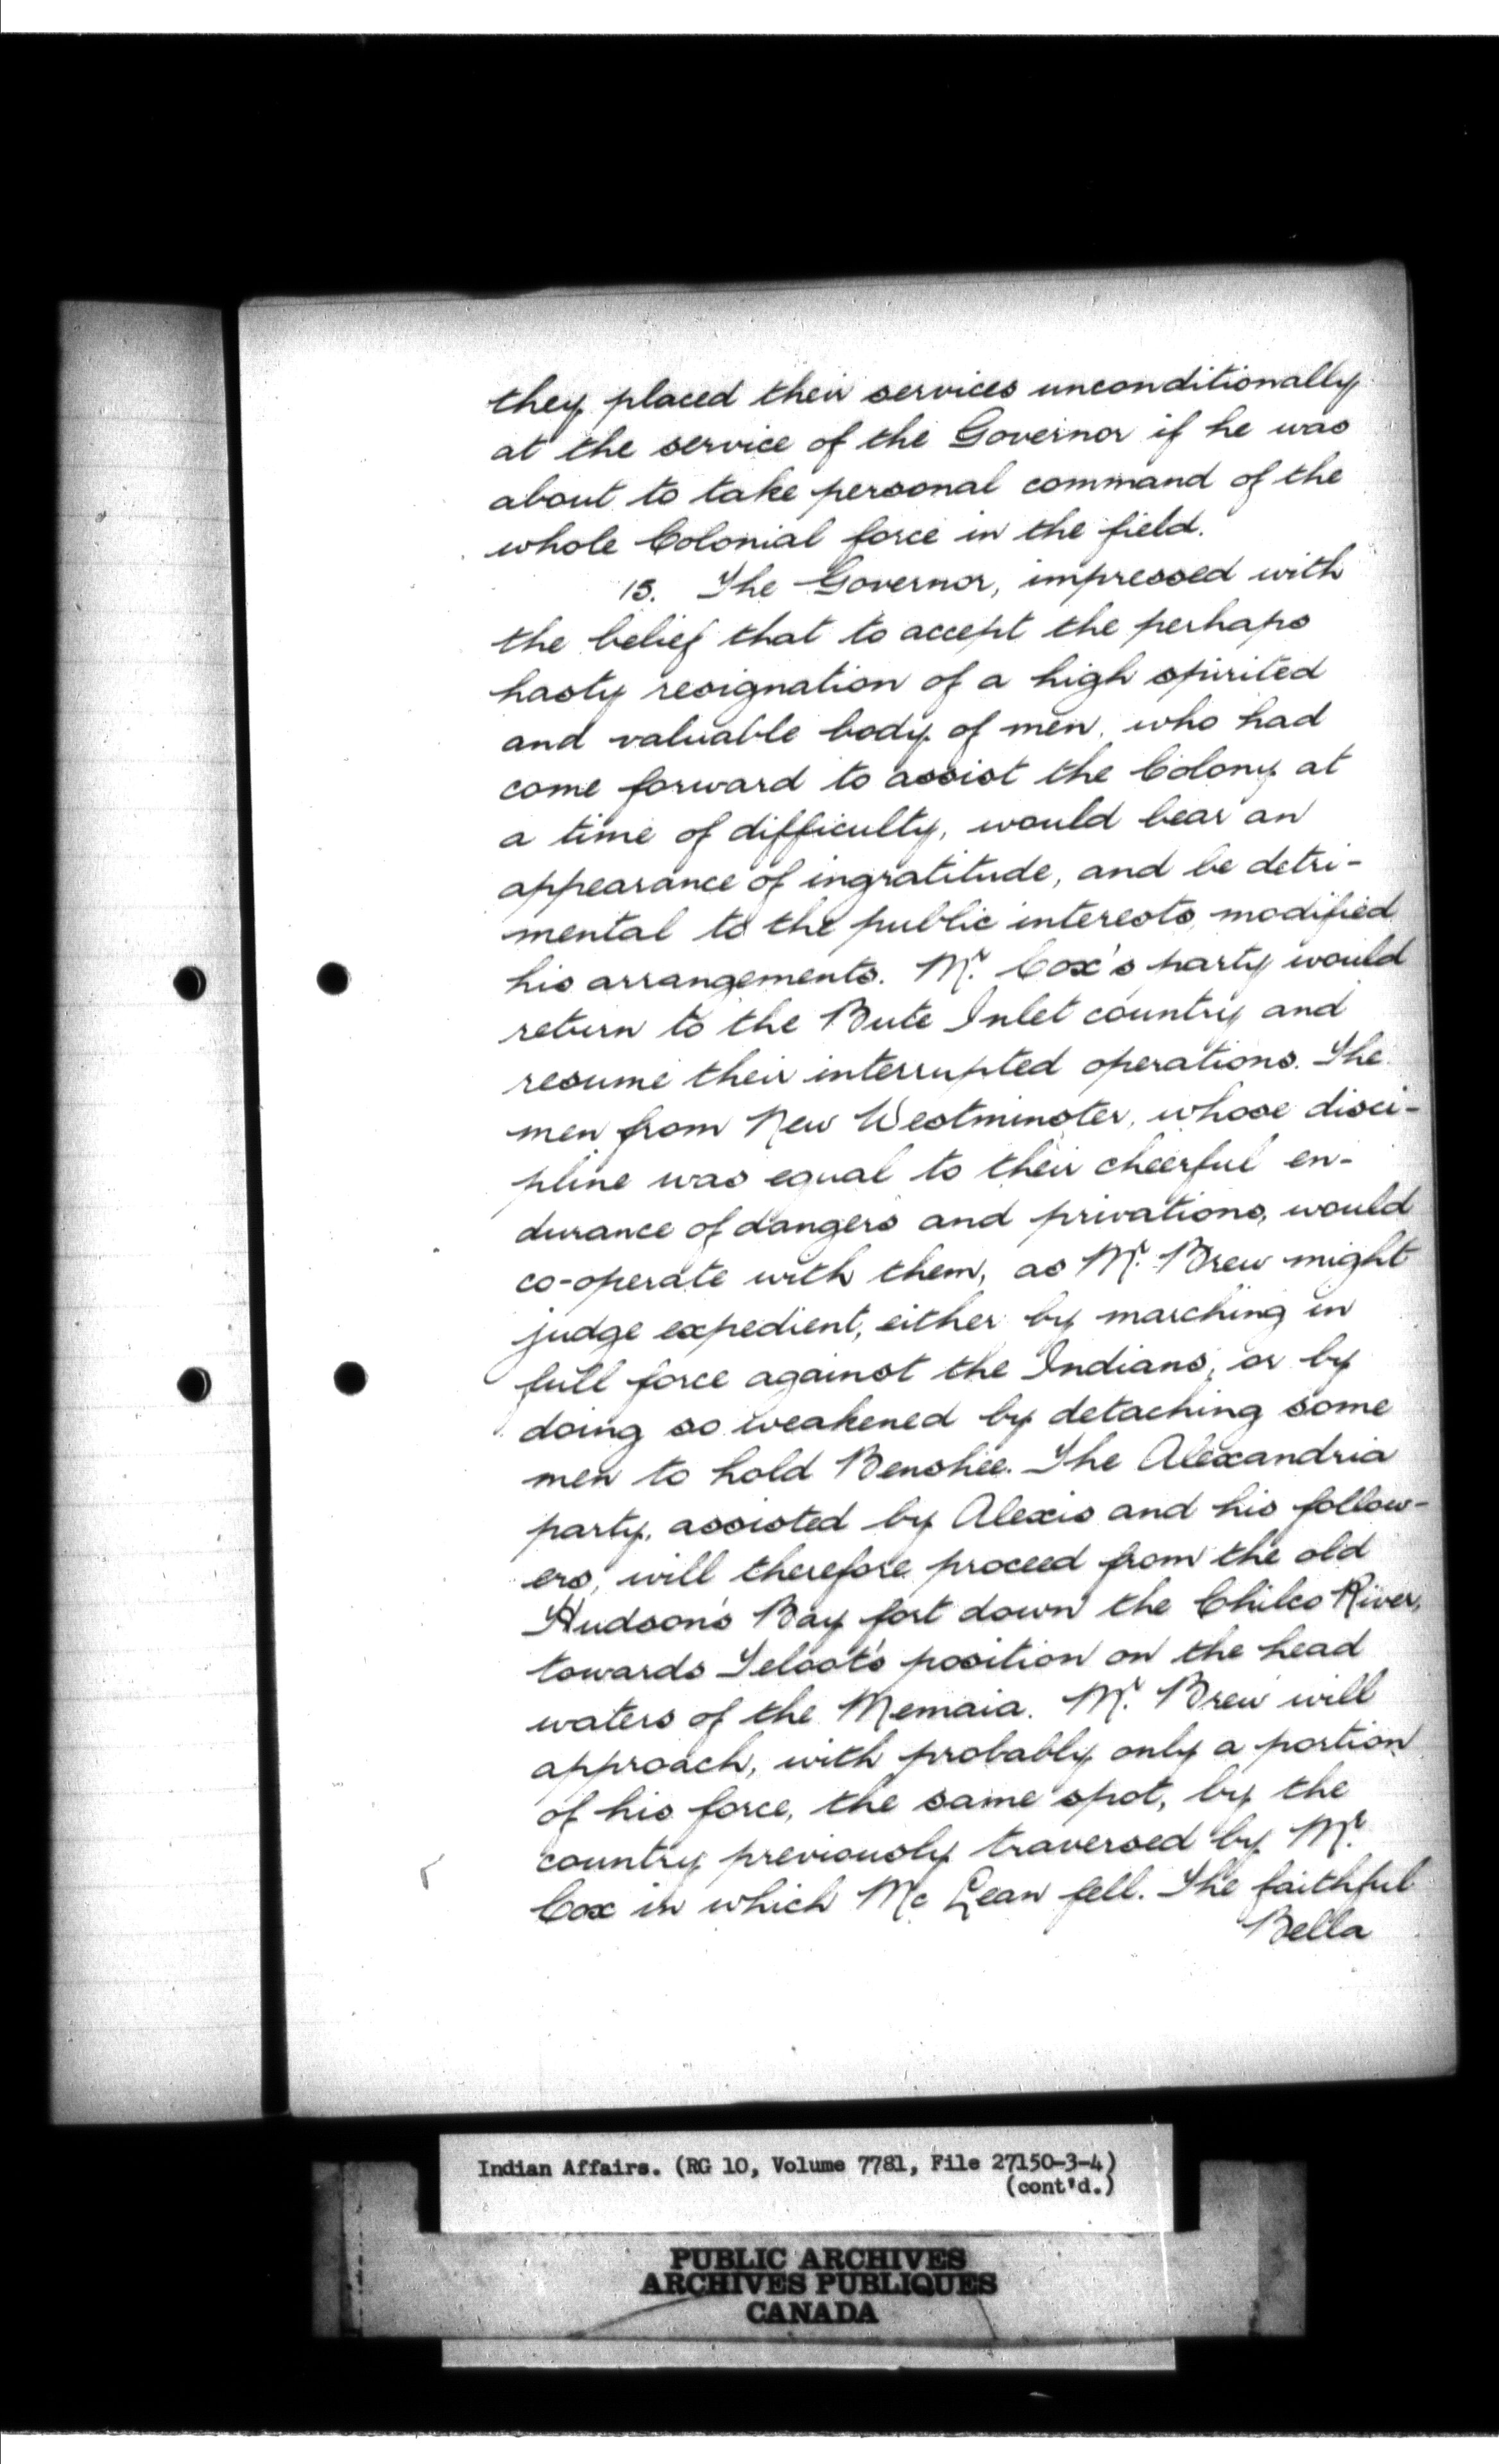 they placed their services unconditionally
at the service of the Governor if he was
about to take personal command of the
whole Colonial force in the field.
15. The Governor, impressed with
the belief that to accept the perhaps
hasty resignation of a high spirited
and valuable body of men, who had
come forward to assist the Colony at
a time of difficulty, would bear an
appearance of ingratitude, and be detri-
mental to the public interests, modified
his arrangements. Mr. Cox's party would
return to the Bute Inlet country and
resume their interrupted operations. The
men from New Westminster, whose disci-
pline was equal to their cheerful en-
durance of dangers and privations, would
co-operate with them, as Mr. Brew might
judge expedient, either by marching in
full force against the Indians, or by
doing so weakened by detaching some
men to hold Benshee. The Alexandria
party, assisted by Alexis and his follow-
ers, will therefore proceed from the old
Hudson's Bay fort down the Chilco River,
towards Teloot's position on the head
waters of the Memaia. Mr. Brew will
approach, with probably only a portion
of his force, the same spot, by the
country previously traversed by Mr.
Cox in which Mc Lean fell. The faithful
Bella
Indian Affairs. (RG 10, Volume 7781, File 27150-3-4)
(cont'd.)
PUBLIC ARCHIVES
ARCHIVES PUBLIQUES
CANADA